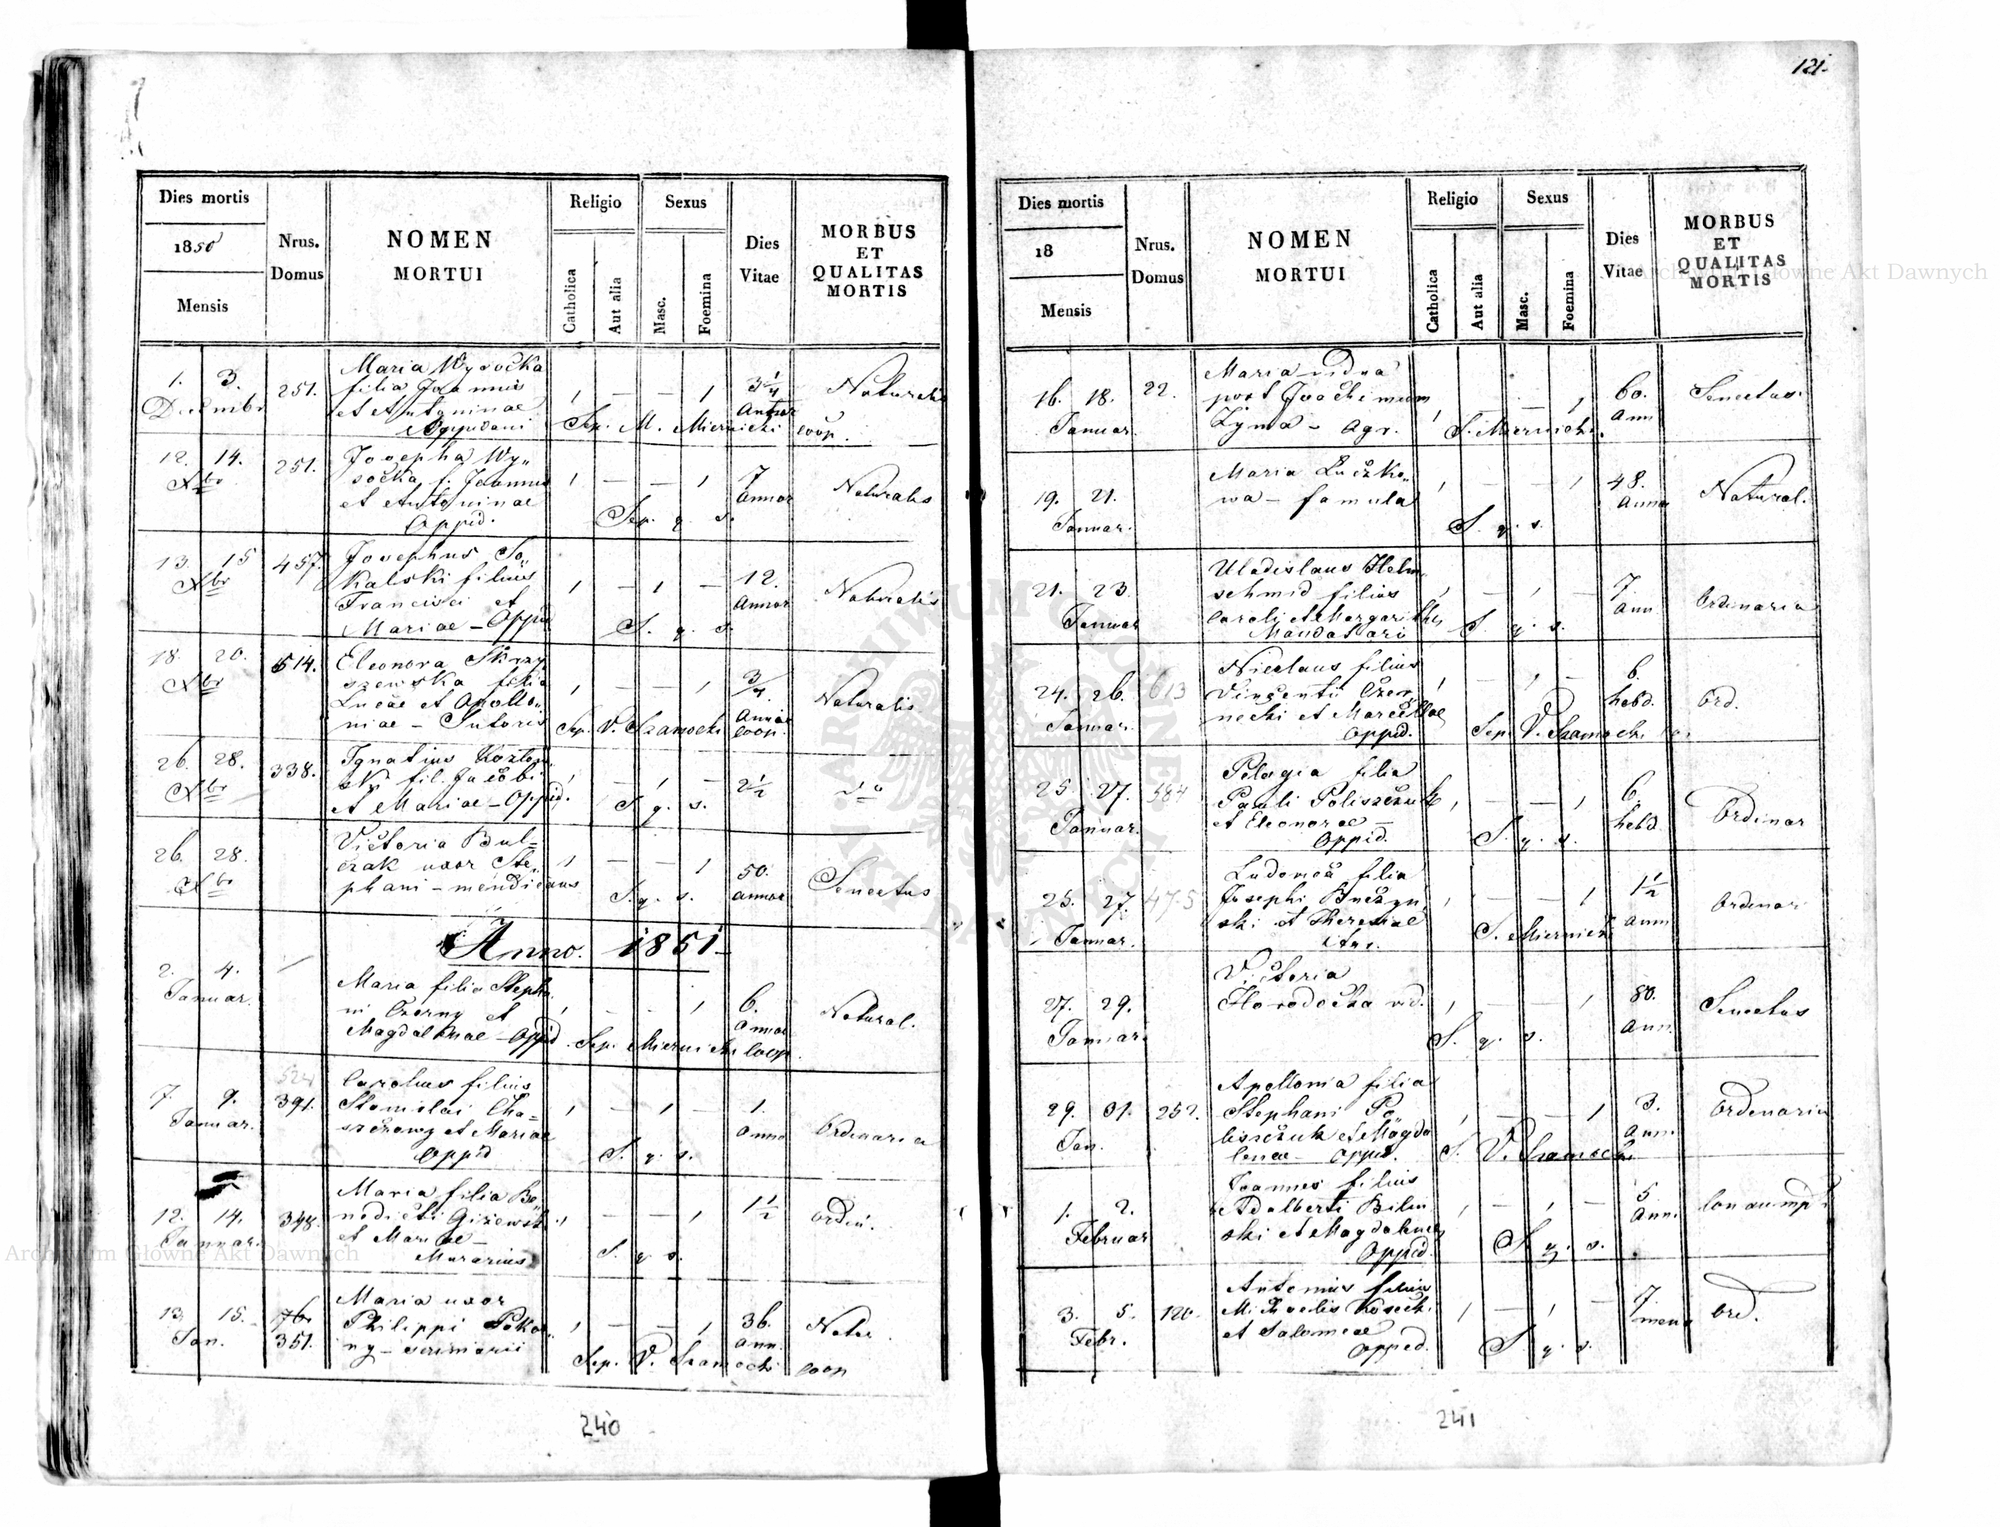 121.
Dies mortis
1850
Mensis
Nrus.
Domus
NOMEN
MORTUI
Religio
Catholica
Aut alia
Sexus
Masc.
Foemina
Dies
Vitae
MORBUS
ET
QUALITAS
MORTIS
1. 3.
Decembr
251.
Maria Wysočka
filia Joannis
et Antoninae
Oppidani
3 1/4
Annor
Naturalis
Sep. M. Miernicki coop.
12. 14.
Xbr
251.
Josepha Wy„
sočka f. Joannis
et Antoninae
Oppid.
7
annor
Naturalis
Sep. q. s.
13. 15
Xbr
457.
Josephus So„
kalski filius
Francisci et
Mariae - Oppid
12.
Annor
Naturalis
S. q. s.
18. 20.
Xbr
514.
Eleonora Skrzy
szewska filia
Lucae et Apollo„
niae - Sutoris
3/4
Annor
Naturalis
Sep. V. Szamocki coop.
26. 28.
Xbr
338.
Ignatius Kozlow
sky fil. Jacobi
et Mariae - Oppid.
2 1/2
S. q. s.
26. 28.
Xbr
Victoria Bul=
czak uxor Ste„
phani - mendicans
50.
annor
Senectus
S. q. s.
Anno. 1851
2. 4.
Januar.
Maria filia Stepha
ni Czerny et
Magdalenae - Oppid
6.
annor
Natural.
Sep. Miernicki coop.
7. 9.
Januar.
521
391.
Carolus filius
Stanislai Cha=
szczowy et Mariae
Oppid
1.
Anno
Ordinaria
S. q. s.
12. 14.
Januar.
348.
Maria filia Be„
nedicti Giżewski
et Mariae -
Murarius
1 1/2
ordin.
S. q. s.
13. 15.
Jan.
76
351.
Maria uxor
Philippi Poko„
ny -
36.
ann.
Natur.
Sep. V. Szamocki coop
240
Dies mortis
18
Mensis
Nrus.
Domus
NOMEN
MORTUI
Religio
Catholica
Aut alia
Sexus
Masc.
Foemina
Dies
Vitae
MORBUS
ET
QUALITAS
MORTIS
16. 18.
Januar.
22.
Maria vidua
post Joachimum
Zyma - Agr.
60.
Ann
Senectus.
S. Miernicki.
19. 21.
Januar.
Maria Łuczko„
wa - famula
48.
Anno
Natural.
S. q. s.
21. 23.
Januar
Uladislaus Helm
schmid filius
Caroli et Margarithy
Mandatari
7
Ann
Ordinaria
S. q. s.
24. 26.
Januar.
613
Nicolaus filius
Vincenti Czer„
necki et Marcellae
Oppid.
6.
hebd.
Ord.
Sep. V. Szamocki
25. 27.
Januar.
584
Pelagia filia
Pauli Poliszczuk
et Eleonorae -
Oppid.
6.
hebd
Ordinar
S. q. s.
25. 27.
Januar.
475
Ludovica filia
Josephi Buczyn
ski et Theresiae
1 1/2
ann
Ordinar
S. Miernicki
27. 29.
Januar
Victoria
Horodečka vid.
80.
Ann.
Senectus
S. q. s.
29. 31.
Jan.
252.
Apollonia filia
Stephani Po„
liszczuk et Magda
lenae - Oppid.
3.
Ann.
Ordinaria
S. V. Szamocki
1. 2.
Februar
Joannes filius
Adalberti Bilin
ski et Magdalenae
Oppid.
5
Ann.
Consumpt
S. q. s.
3. 5.
Febr.
120.
Antonius filius
Michaelis Kosecki
et Salomeae
Opped.
7
mens
Ord.
S. q. s.
241
Archiwum Główne Akt Dawnych
Archiwum Główne Akt Dawnych
ARCHIWUM GŁÓWNE AKT DAWNYCH